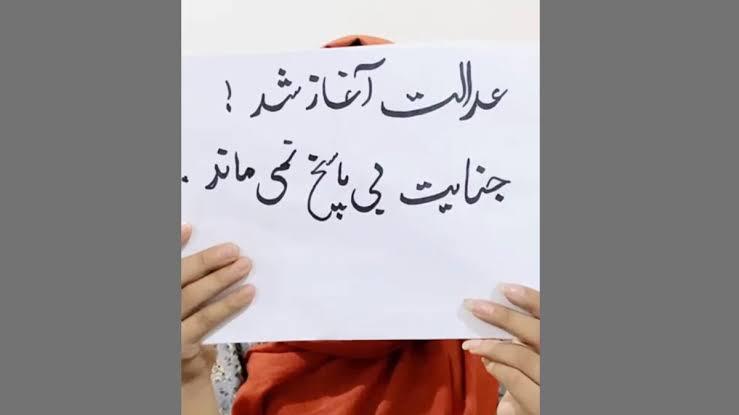 عدالت آغاز شد !
جنایت بی پاسخ نمی ماند .